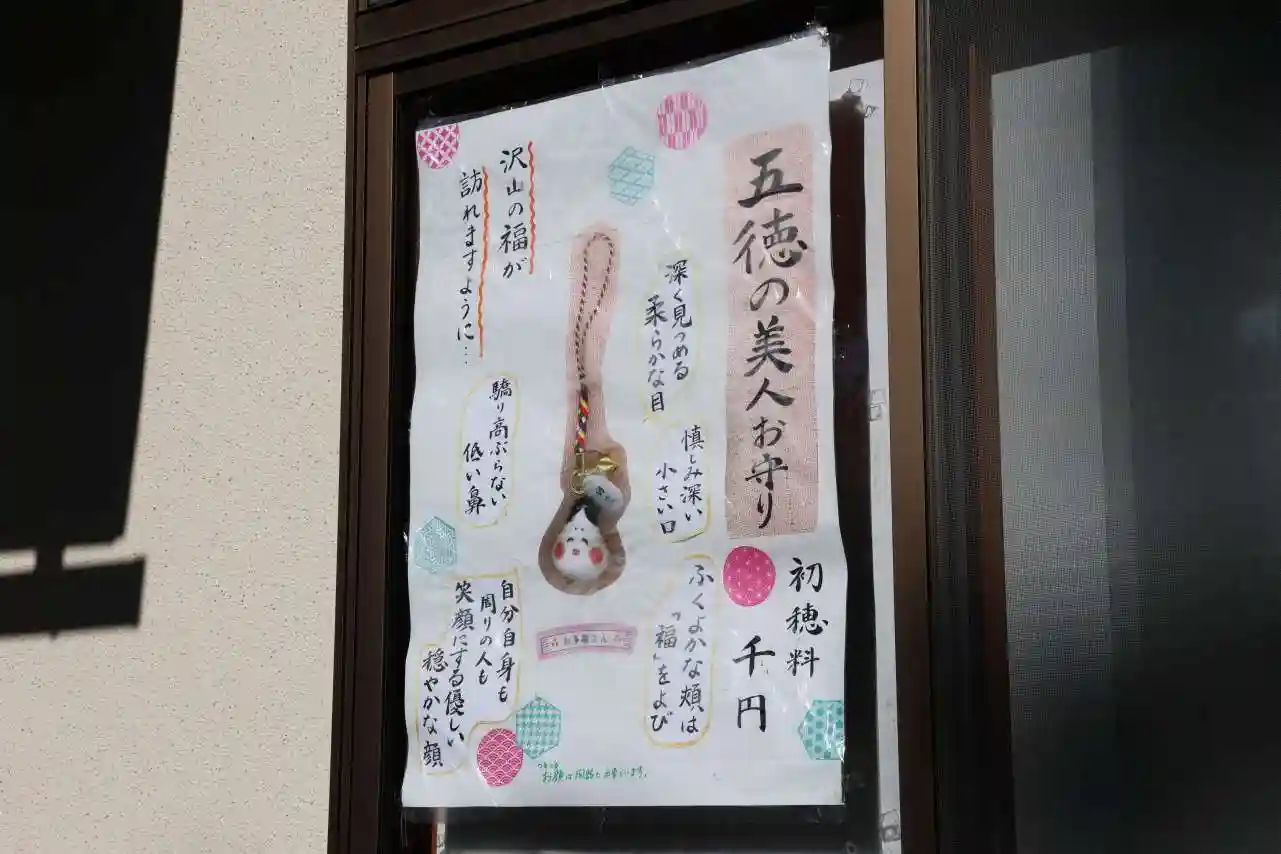 五徳の美人お守り
初穂料
千円
深く見つめる
柔らかな目
慎しみ深い
小さい口
ふくよかな頬は
「福」をよび
沢山の福が
訪れますように…
驕り高ぶらない
低い鼻
自分自身も
周りの人も
笑顔にする優しい
穏やかな顔